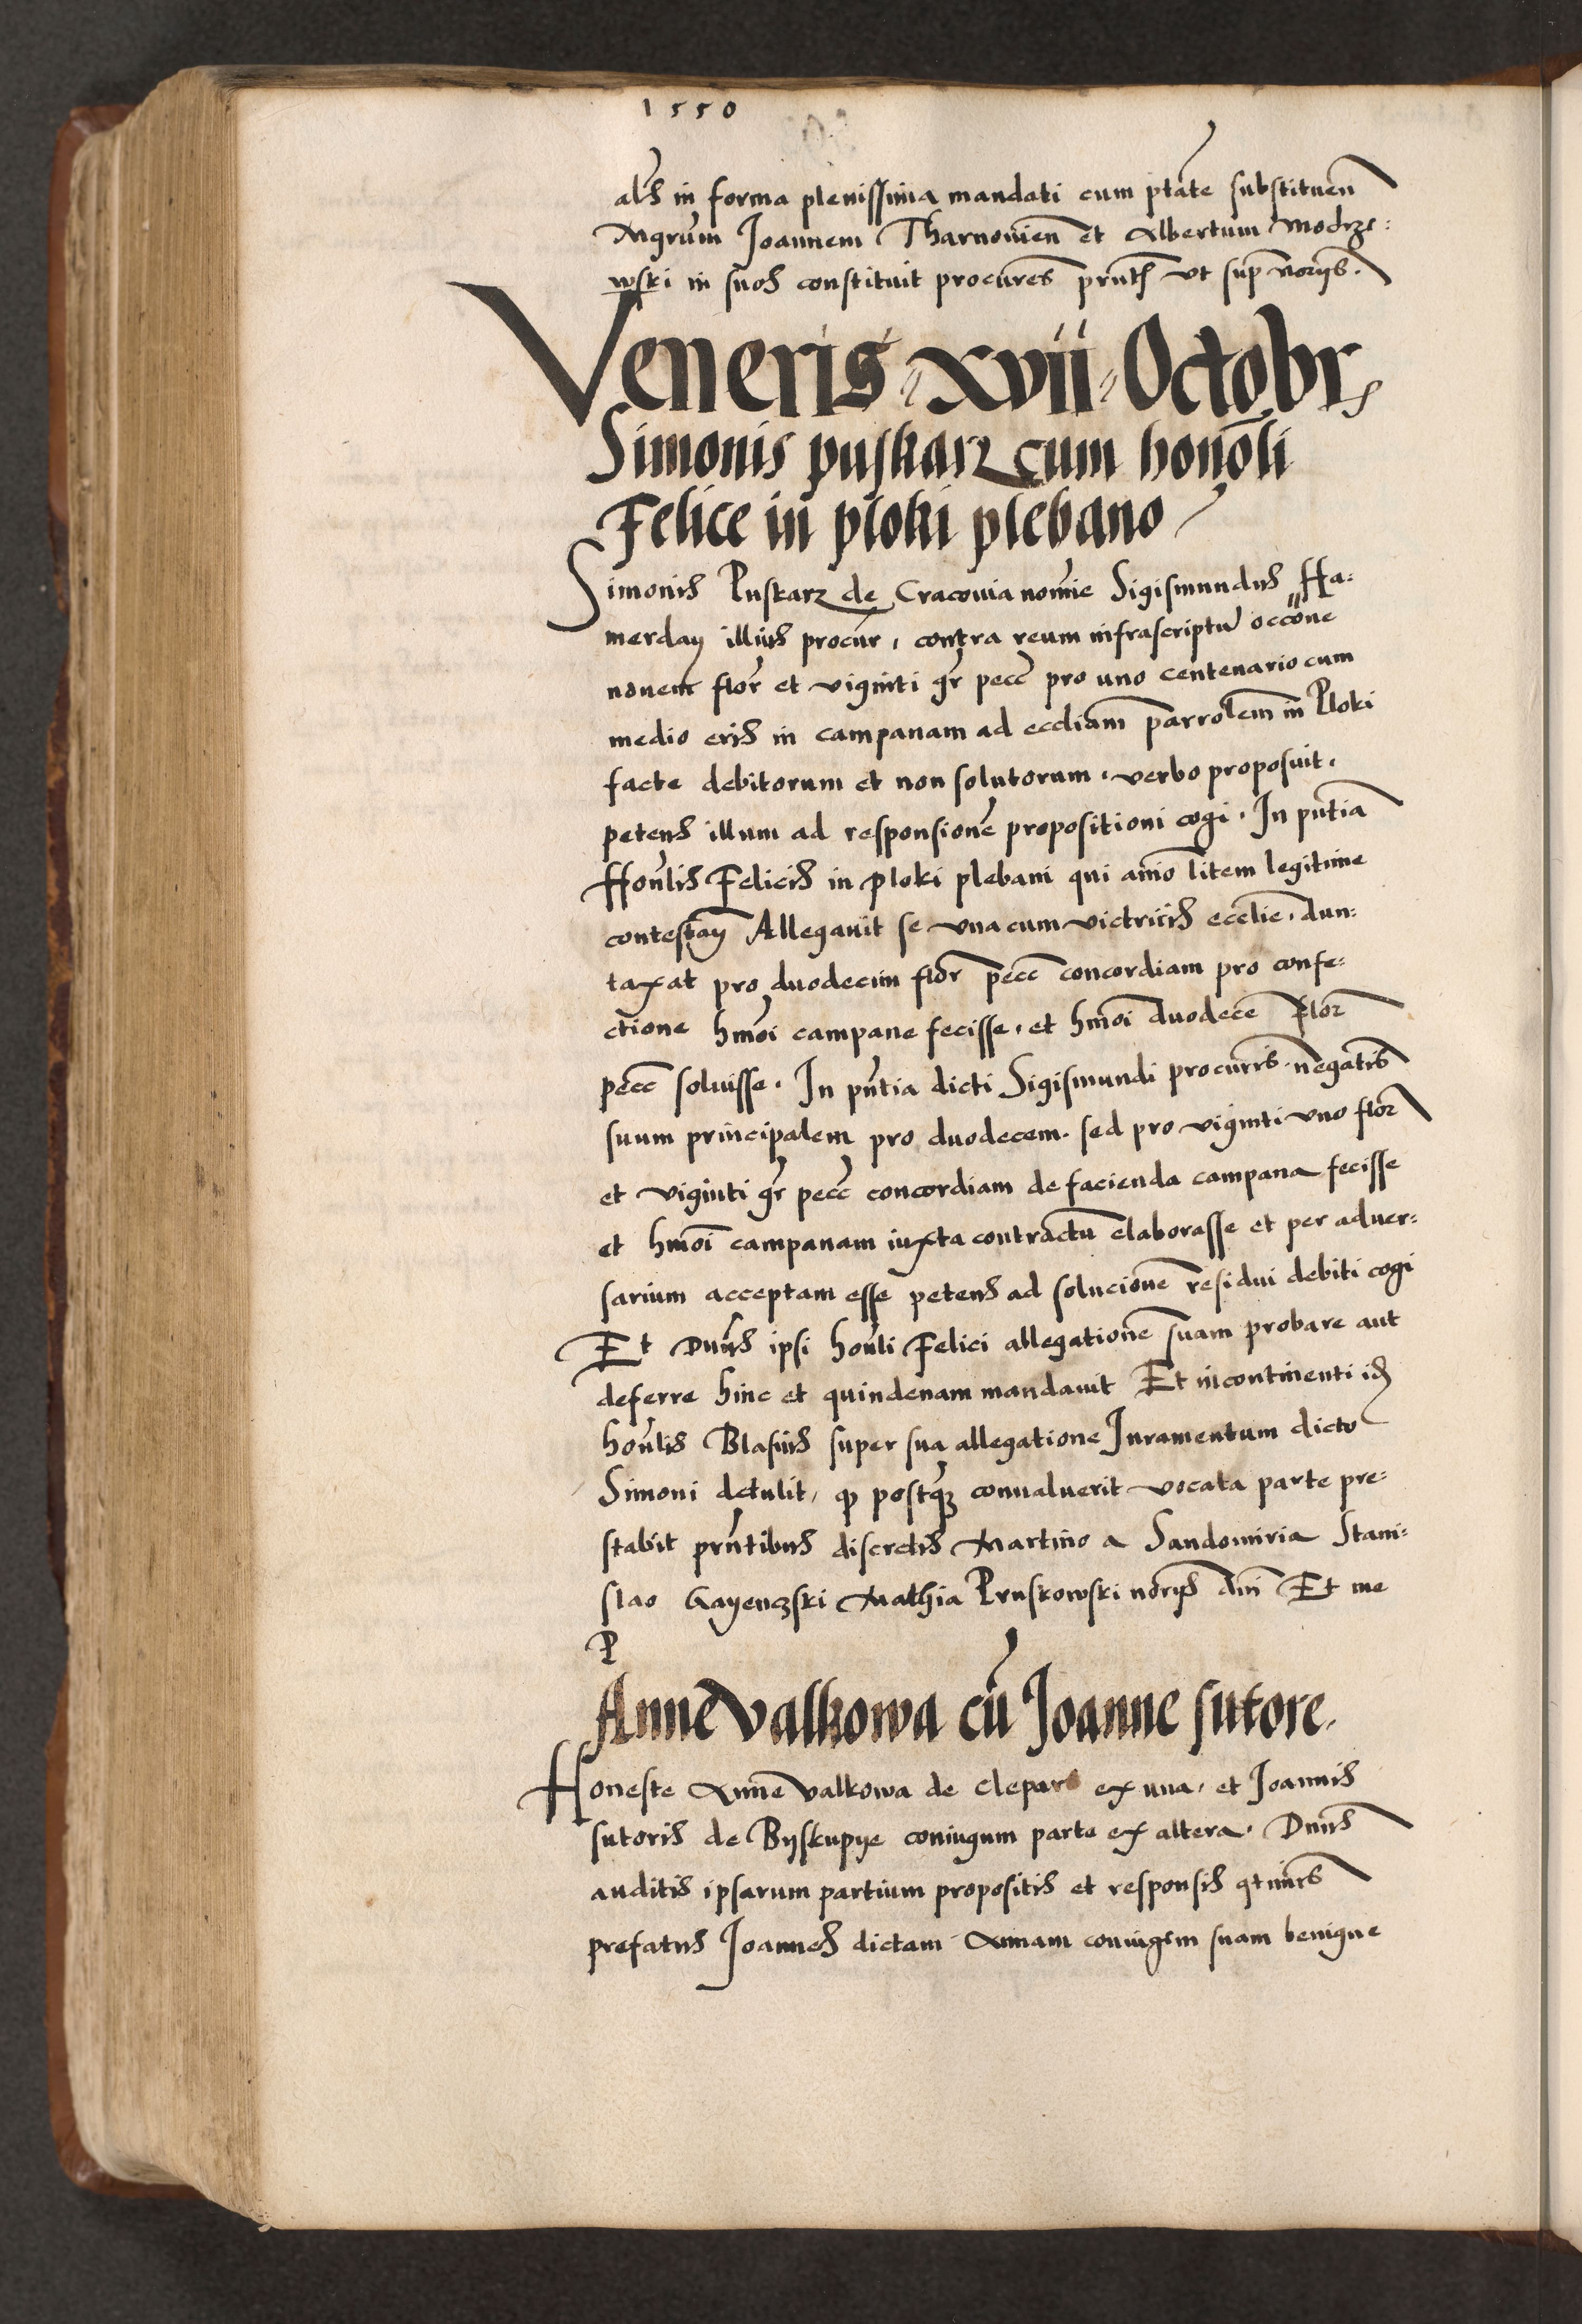 1550
als in forma plenissima mandati cum ptate substituen
Mgrum Joannem Tharnovien et Albertum Modrze:
wski in suos constituit procures pntes ut sup norijs.
Veneris xvii Octobr
Simonis puskarz cum honoli
Felice in ploki plebano
Simonis Puskarz de Cracovia nomie Sigismundus Ha:
merday illius procur, contra reum infrascriptu occone
novem flor et viginti gr pecc pro uno centenario cum
medio eris in campanam ad eccliam parrolem in Ploki
facte debitorum et non solutorum, verbo proposuit.
petens illum ad responsione propositioni cogi. In pntia
Honlis Felicis in Ploki plebani qui animo litem legitime
contestan Allegavit se una cum victricis ecclie, dun:
taxat pro duodecim flor pecc concordiam pro confe:
ctione hmoi campane fecisse, et hmoi duodece flor
pecc solvisse. In pntia dicti Sigismundi procuris negatis
suum principalem pro duodecem. sed pro viginti uno flor
et viginti gr pecc concordiam de facienda campana fecisse
et hmoi campanam iuxta contractu elaborasse et per adver:
sarium acceptam esse petens ad solucione residui debiti cogi
Et Dnus ipsi honli Felici allegatione suam probare aut
deferre hinc et quindenam mandavit Et incontinenti id
honlis Blasius super sua allegatione Juramentum dicto
Simoni detulit, qd postq convaluerit vocata parte pre:
stabit pntibus discretis Martino a Sandomiria Stani:
slao Gayenczski Mathia Pruskowski norijs dni Et me
P
Anne Valkowa cu Joanne sutore.
Honeste Anne Valkowa de Clepar ex una, et Joannis
sutoris de Byskupye coniugum parte ex altera. Dnus
auditis ipsarum partium propositis et responsis
prefatus Joannes dictam Annam coniugem suam benigne